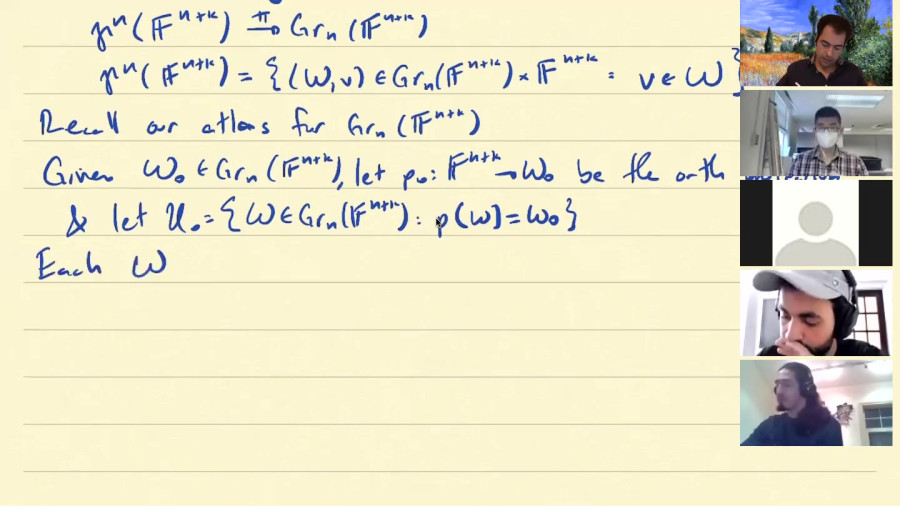 γⁿ(𝔽ⁿ⁺ᵏ) →π Grₙ(𝔽ⁿ⁺ᵏ)
γⁿ(𝔽ⁿ⁺ᵏ) = {(W,v) ∈ Grₙ(𝔽ⁿ⁺ᵏ) × 𝔽ⁿ⁺ᵏ : v ∈ W}
Recall our atlas for Grₙ(𝔽ⁿ⁺ᵏ)
Given W₀ ∈ Grₙ(𝔽ⁿ⁺ᵏ), let p₀: 𝔽ⁿ⁺ᵏ → W₀ be the orth
& let U₀ = {W ∈ Grₙ(𝔽ⁿ⁺ᵏ) : p(W) = W₀}
Each W